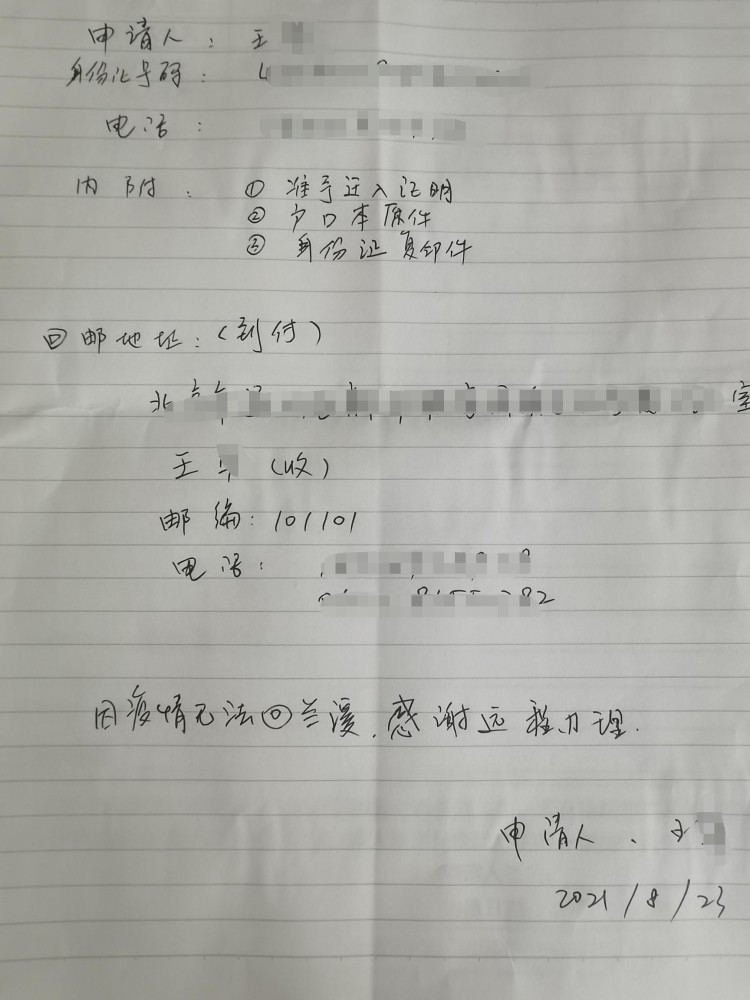 申请人：王
身份证号码：
电话：
内附：① 准予迁入证明
② 户口本原件
③ 身份证复印件
回邮地址：(到付)
北 室
王 (收)
邮编：101101
电话：
82
因疫情无法回兰溪，感谢远程办理.
申请人、王
2021/8/23